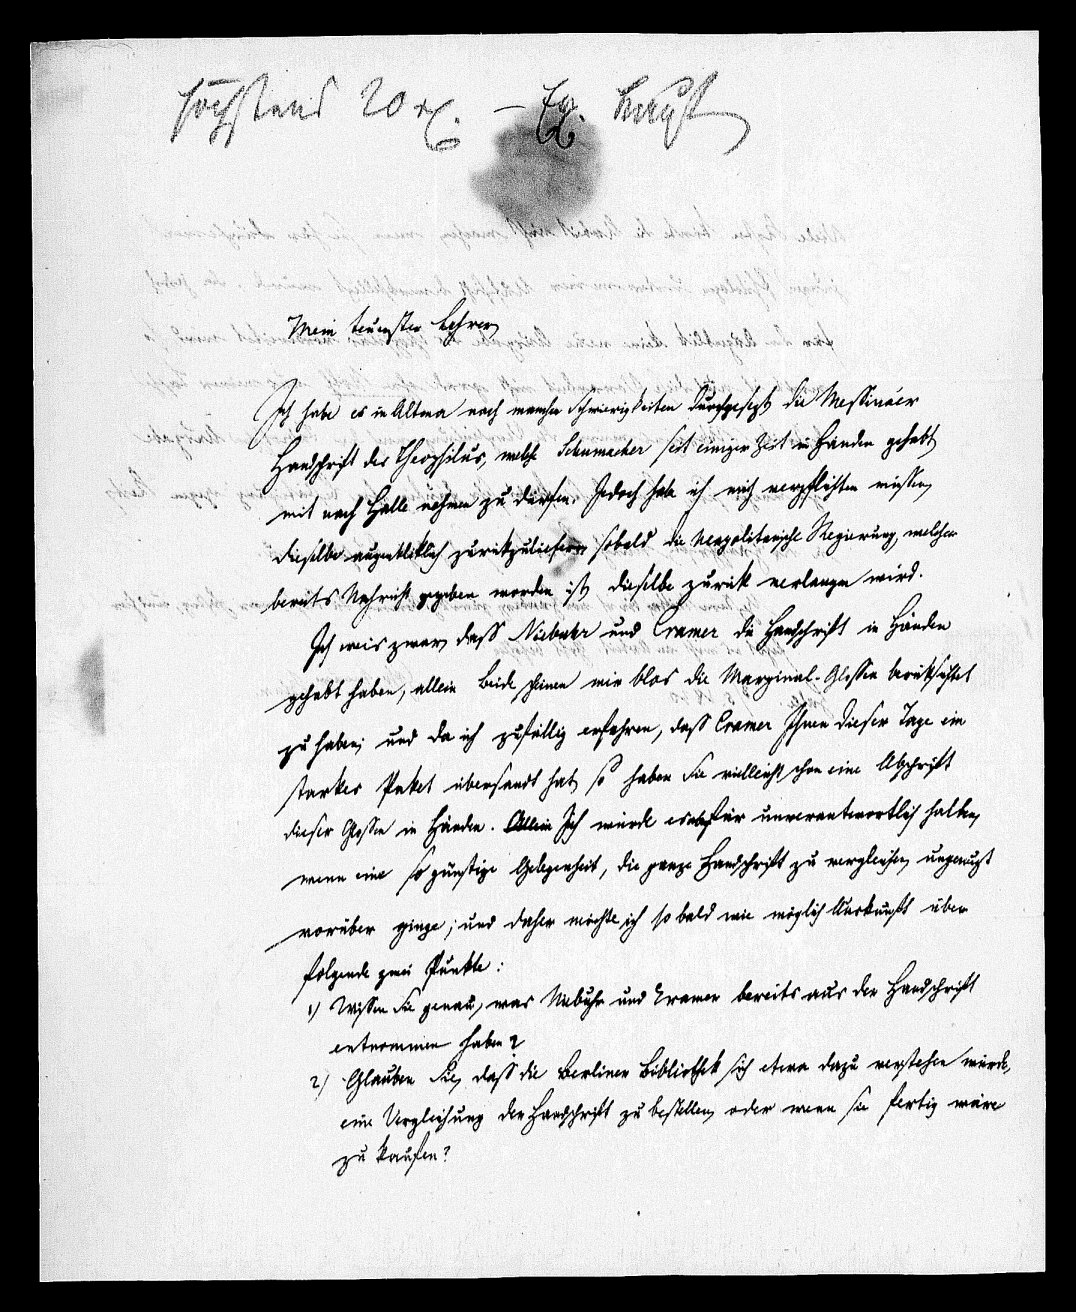 höchstens 20 rℓ. –
Mein teuerster Lehrer,
Ich habe es in Altona nach manchen Schwierigkeiten durchgesezt, die Messinaer
Handschrift des Theophilus, welche Schumacher seit einiger Zeit in Händen gehabt,
mit nach Halle nehmen zu dürfen. Jedoch habe ich mich verpflichten müssen,
dieselbe augenbliklich zurükzuliefern, sobald die Neapolitanische Regierung, welcher
bereits Nachricht gegeben worden ist, dieselbe zurük verlangen wird.
Ich weis zwar, daß Niebuhr und Cramer die Handschrift in Händen
gehabt haben, allein beide scheinen mir blos die Marginal-Glossen berüksichtigt
zu haben; und da ich zufällig erfahren, daß Cramer Ihnen dieser Tage ein
starkes Paket übersandt hat, so haben Sie vielleicht schon eine Abschrift
dieser Glossen in Händen. Allein Ich würde es für unverantwortlich halten,
wenn eine so günstige Gelegenheit, die ganze Handschrift zu vergleichen, ungenuzt
vorüber ginge; und daher möchte ich so bald wie möglich Auskunft über
folgende zwei Punkte:
1) Wissen Sie genau, was Niebuhr und Cramer bereits aus der Handschrift
entnommen haben?
2) Glauben Sie, daß die Berliner Bibliothek sich etwa dazu verstehen würde,
eine Vergleichung der Handschrift zu bestellen, oder wenn sie fertig wäre
zu kaufen?